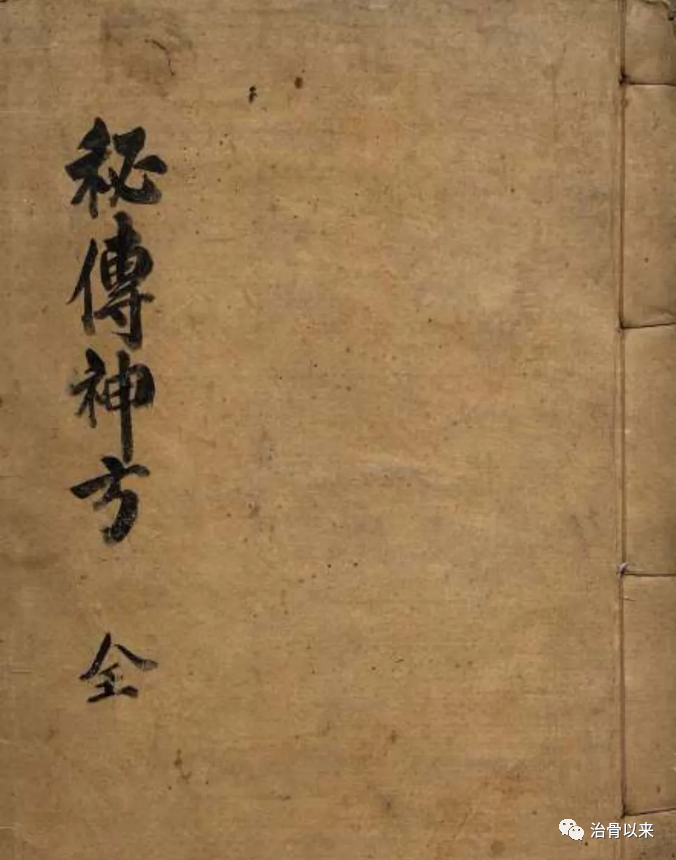 秘傳神方 全
治骨以来